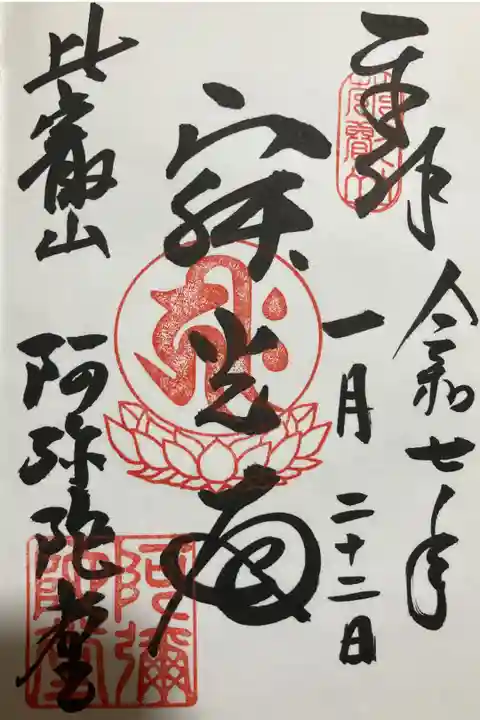 奉拝
令和七年
一月二十二日
寂光
比叡山
阿弥陀堂
阿彌
陀堂